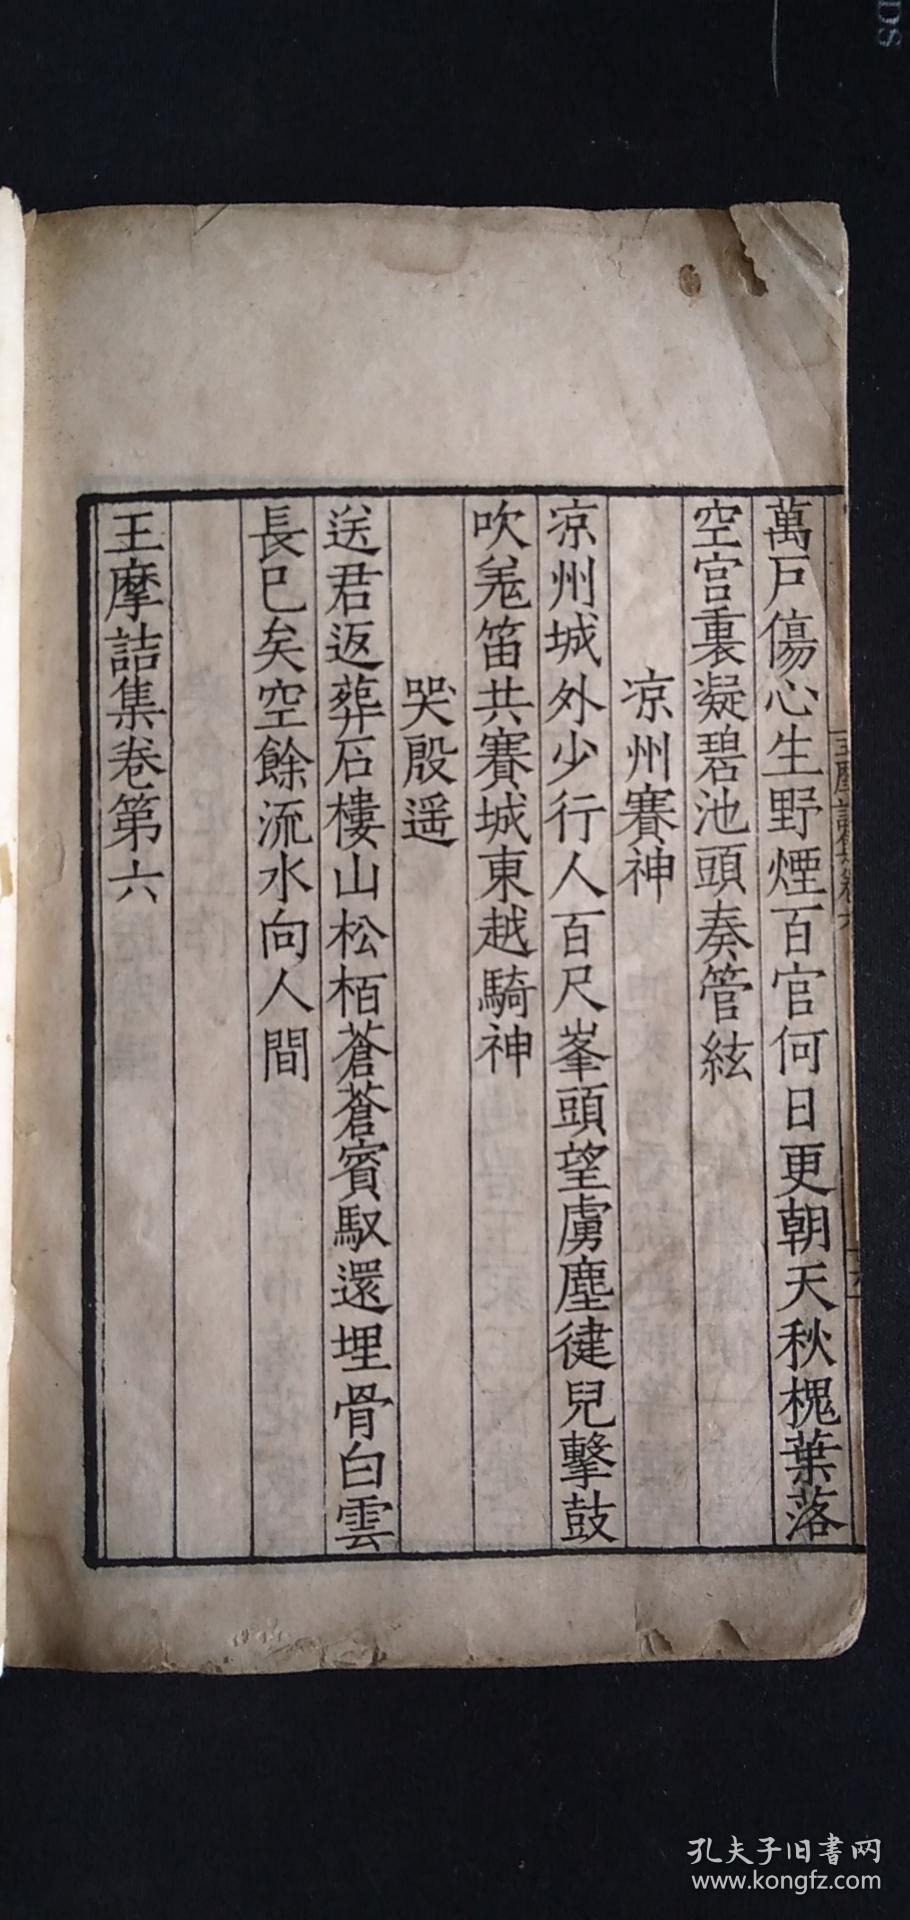 萬戶傷心生野煙百官何日更朝天秋槐葉落
空宮裏凝碧池頭奏管絃
凉州賽神
凉州城外少行人百尺峯頭望虜塵健兒擊鼓
吹羌笛共賽城東越騎神
哭殷遥
送君返葬石樓山松栢蒼蒼賓馭還埋骨白雲
長已矣空餘流水向人間
王摩詰集卷第六
孔夫子旧書网
www.kongfz.com